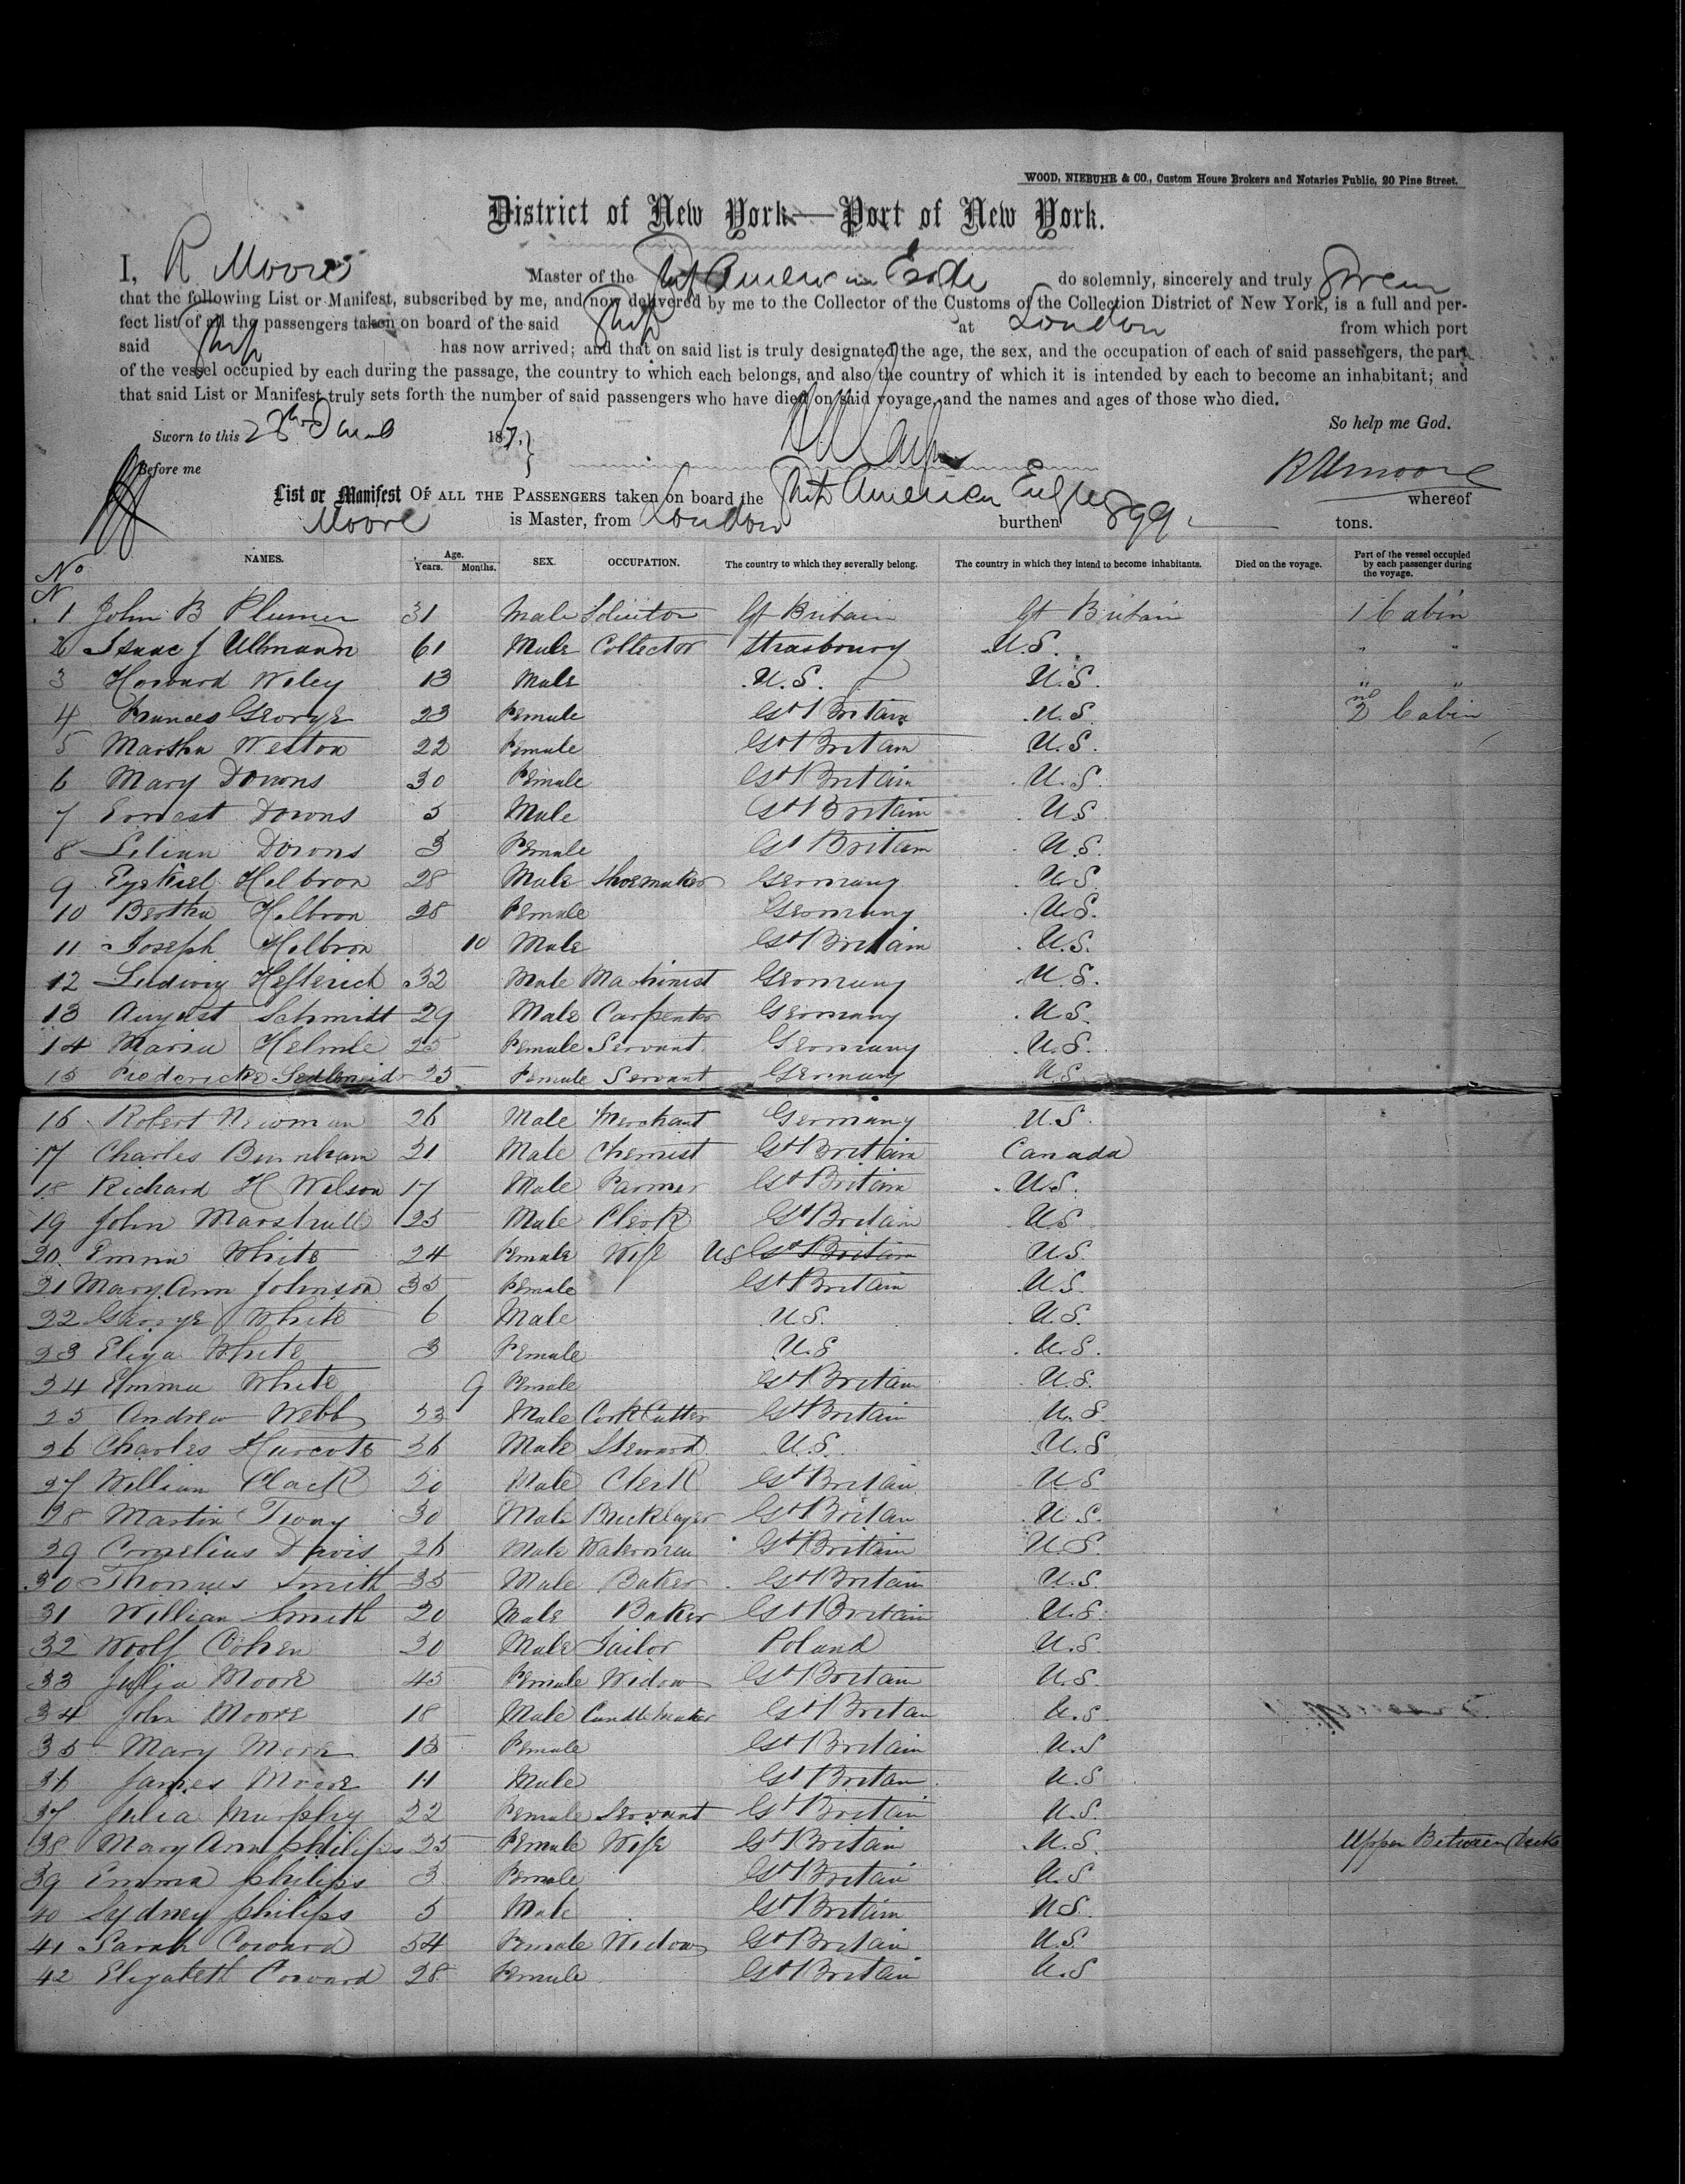 WOOD, NIEBUHR & CO., Custom House Brokers and Notaries Public, 20 Pine Street.
District of New York—Port of New York.
I, R Moore Master of the Ship American Eagle do solemnly, sincerely and truly Swear
that the following List or Manifest, subscribed by me, and now delivered by me to the Collector of the Customs of the Collection District of New York, is a full and per-
fect list of all the passengers taken on board of the said Ship at London from which port
said Ship has now arrived; and that on said list is truly designated the age, the sex, and the occupation of each of said passengers, the part
of the vessel occupied by each during the passage, the country to which each belongs, and also the country of which it is intended by each to become an inhabitant; and
that said List or Manifest truly sets forth the number of said passengers who have died on said voyage, and the names and ages of those who died.
So help me God.
Sworn to this 28th 187
Before me
R H Moore
List or Manifest OF ALL THE PASSENGERS taken on board the Ship American Eagle whereof
Moore is Master, from London burthen 899 tons.
No NAMES. Age. Years. Months. SEX. OCCUPATION. The country to which they severally belong. The country in which they intend to become inhabitants. Died on the voyage. Part of the vessel occupied by each passenger during the voyage.
1 John B Plumer 31 Male Solicitor Gt Britain Gt Britain 1 Cabin
2 Isaac J Ullmann 61 Male Collector Strasbourg U.S. " "
3 Howard Wiley 13 Male U.S. U.S. " "
4 Frances George 23 Female Gt Britain U.S. 2nd Cabin
5 Martha Weston 22 Female Gt Britain U.S.
6 Mary Downs 30 Female Gt Britain U.S.
7 Ernest Downs 5 Male Gt Britain U.S
8 Lilian Downs 3 Female Gt Britain U.S.
9 Ezekiel Helbron 28 Male Shoemaker Germany U.S.
10 Bertha Helbron 28 Female Germany U.S.
11 Joseph Helbron 10 Male Gt Britain U.S.
12 Ludwig Hefterich 32 Male Machinist Germany U.S.
13 August Schmidt 29 Male Carpenter Germany U.S.
14 Maria Helmle 25 Female Servant Germany U.S.
15 Frederick 25 Female Servant Germany U.S.
16 Robert Newman 26 Male Merchant Germany U.S.
17 Charles Burnham 21 Male Chemist Gt Britain Canada
18 Richard H Wilson 17 Male Farmer Gt Britain U.S.
19 John Marshall 25 Male Clerk Gt Britain U.S
20 Emma White 24 Female Wife US Gt Britain U.S
21 Mary Ann Johnson 35 Female Gt Britain U.S.
22 George White 6 Male U.S. U.S.
23 Eliza White 3 Female U.S U.S.
24 Emma White 9 Female Gt Britain U.S.
25 Andrew Webb 23 Male Cork Cutter Gt Britain U.S
26 Charles Harcote 36 Male Steward U.S. U.S
27 William Clack 20 Male Clerk Gt Britain U.S
28 Martin Tway 30 Male Bricklayer Gt Britain U.S.
29 Cornelius Davis 26 Male Waterman Gt Britain U.S.
30 Thomas Smith 35 Male Baker Gt Britain U.S.
31 William Smith 20 Male Baker Gt Britain U.S.
32 Woolf Cohen 20 Male Tailor Poland U.S.
33 Julia Moore 45 Female Widow Gt Britain U.S.
34 John Moore 18 Male Candlemaker Gt Britain U.S.
35 Mary Moore 13 Female Gt Britain U.S
36 James Moore 11 Male Gt Britain U.S
37 Julia Murphy 22 Female Servant Gt Britain U.S.
38 Mary Ann philips 25 Female Wife Gt Britain U.S. Upper Between Decks
39 Emma philips 3 Female Gt Britain U.S
40 Sydney philips 5 Male Gt Britain U.S.
41 Sarah Coward 54 Female Widow Gt Britain U.S.
42 Elizabeth Coward 28 Female Gt Britain U.S